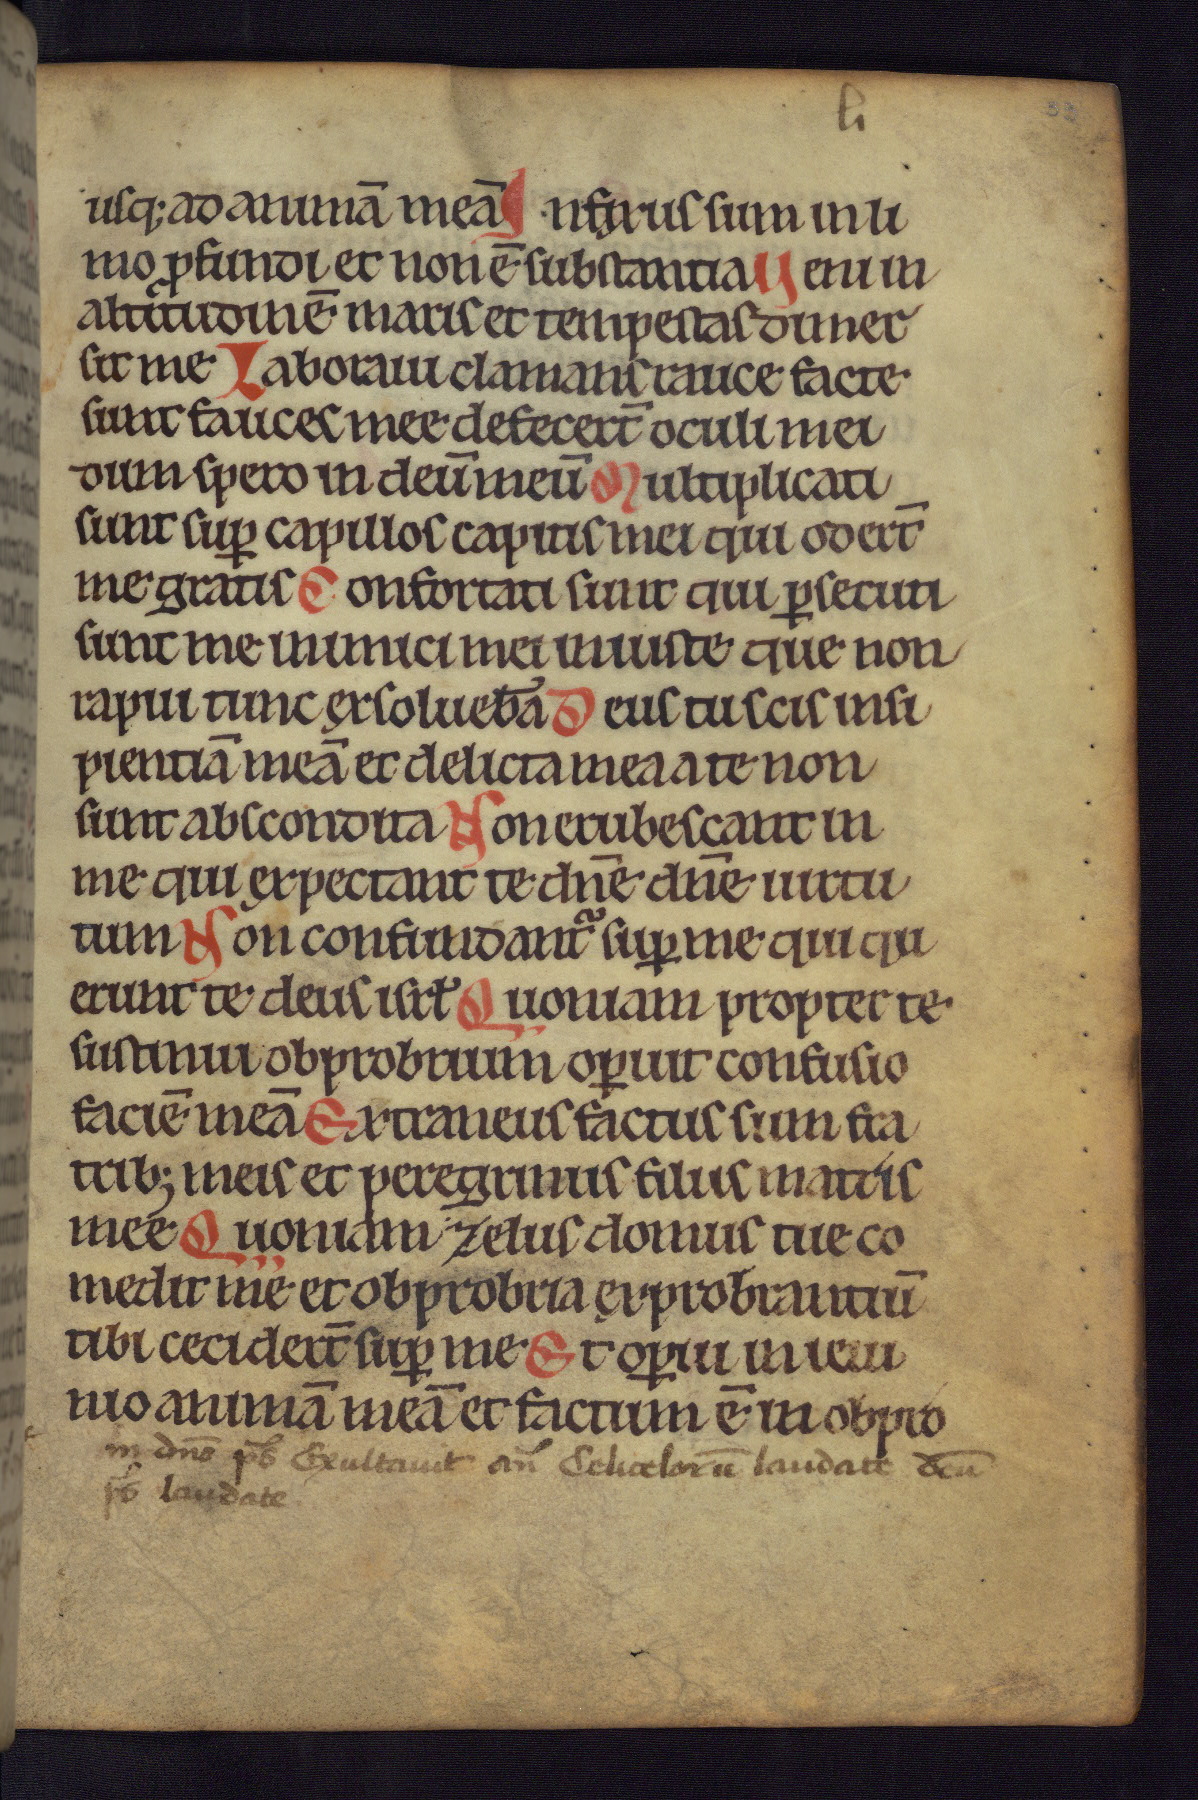 li
usq; ad animā meā Infixus sum in li
mo ꝓfundi et non ē substantia Veni in
altitudinē maris et tempestas dimer
sit me Laboraui clamans rauce facte
sunt fauces mee defecerт̄ oculi mei
dum spero in deū meū Multiplicati
sunt suꝑ capillos capitis mei qui oderт̄
me gratis Confortati sunt qui ꝑsecuti
sunt me inimici mei iniuste que non
rapui tunc exsoluebā Deus tu scis insi
pientiā meā et delicta mea a te non
sunt abscondita Non erubescant in
me qui expectant te dn̄e dn̄e uirtu
tum Non confundant᷑ suꝑ me qui qu
erunt te deus isrł Quoniam propter te
sustinui obprobrium oꝑuit confusio
faciē meā Extraneus factus sum fra
trib; meis et peregrinus filiis matris
mee Quoniam zelus domus tue co
medit me et obprobria exprobrantiū
tibi ceciderт̄ suꝑ me Et oꝑui in ieiu
nio animā meā et factum ē in obpro
in dn̄o ps̄ Exultauit an̄ Celicolarū laudate deū
ps̄ laudate